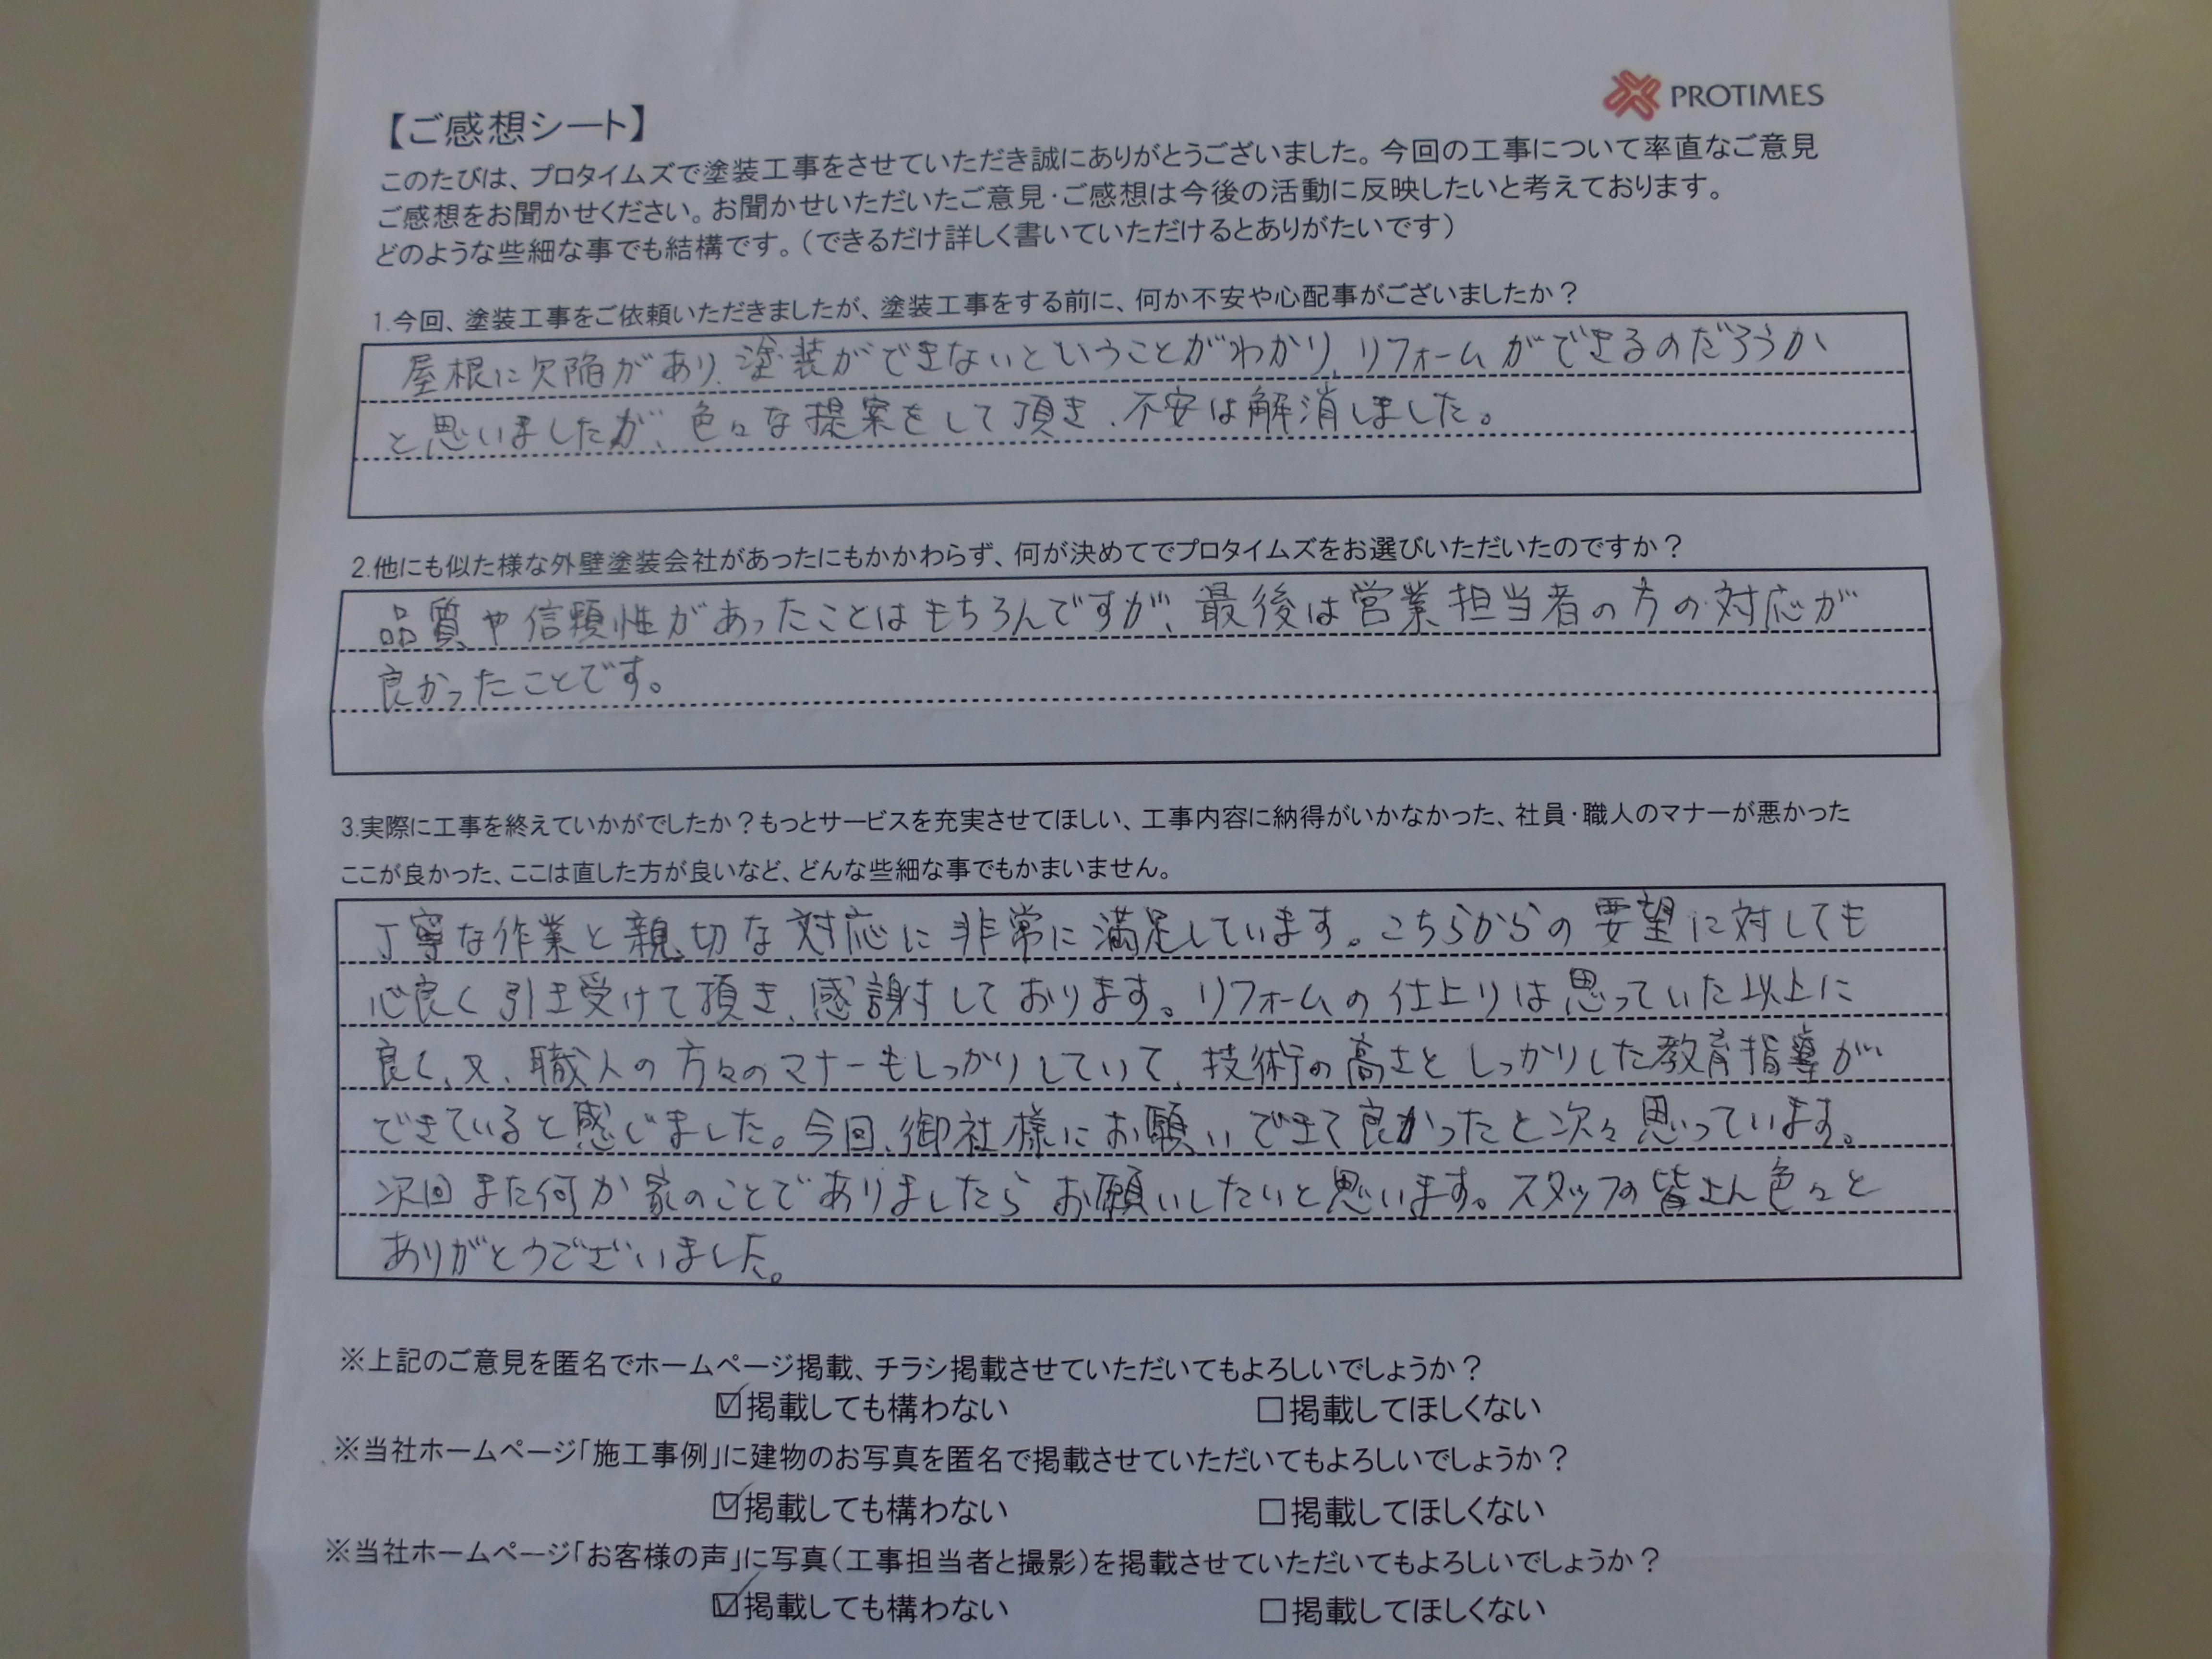 PROTIMES
【ご感想シート】
このたびは、プロタイムズで塗装工事をさせていただき誠にありがとうございました。今回の工事について率直なご意見
ご感想をお聞かせください。お聞かせいただいたご意見・ご感想は今後の活動に反映したいと考えております。
どのような些細な事でも結構です。(できるだけ詳しく書いていただけるとありがたいです)
1.今回、塗装工事をご依頼いただきましたが、塗装工事をする前に、何か不安や心配事がございましたか?
屋根に欠陥があり、塗装ができないということがわかり、リフォームができるのだろうか
と思いましたが、色々な提案をして頂き、不安は解消しました。
2.他にも似た様な外壁塗装会社があったにもかかわらず、何が決めてでプロタイムズをお選びいただいたのですか?
品質や信頼性があったことはもちろんですが、最後は営業担当者の方の対応が
良かったことです。
3.実際に工事を終えていかがでしたか?もっとサービスを充実させてほしい、工事内容に納得がいかなかった、社員・職人のマナーが悪かった
ここが良かった、ここは直した方が良いなど、どんな些細な事でもかまいません。
丁寧な作業と親切な対応に非常に満足しています。こちらからの要望に対しても
心良く引き受けて頂き、感謝しております。リフォームの仕上りは思っていた以上に
良く、又、職人の方々のマナーもしっかりしていて、技術の高さとしっかりした教育指導が
できていると感じました。今回、御社様にお願いできて良かったと次々思っています。
次回また何か家のことでありましたらお願いしたいと思います。スタッフの皆さん色々と
ありがとうございました。
※上記のご意見を匿名でホームページ掲載、チラシ掲載させていただいてもよろしいでしょうか?
☑掲載しても構わない □掲載してほしくない
※当社ホームページ「施工事例」に建物のお写真を匿名で掲載させていただいてもよろしいでしょうか?
☑掲載しても構わない □掲載してほしくない
※当社ホームページ「お客様の声」に写真(工事担当者と撮影)を掲載させていただいてもよろしいでしょうか?
☑掲載しても構わない □掲載してほしくない